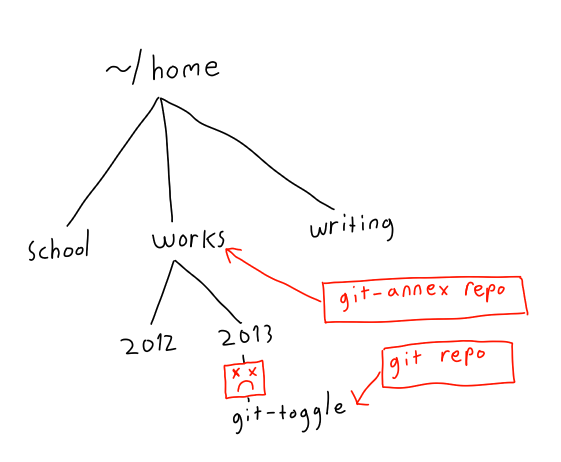 ~/home
school
works
writing
git-annex repo
2012
2013
git repo
x x
git-toggle